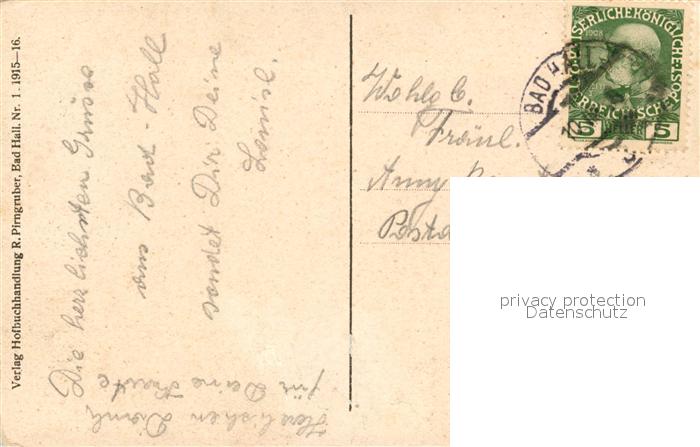 Verlag Hofbuchhandlung R. Pirngruber, Bad Hall. Nr. 1. 1915—16.
Die herzlichsten Grüsse
aus Bad-Hall
sendet Dir Deine
Herzlichen
für Deine Karte
Wohlg b.
Fräul.
Anny
KAISERLICHE KÖNIGLICHE
ÖSTERREICHISCHE POST
1908
5 5
BAD HALL
privacy protection
Datenschutz